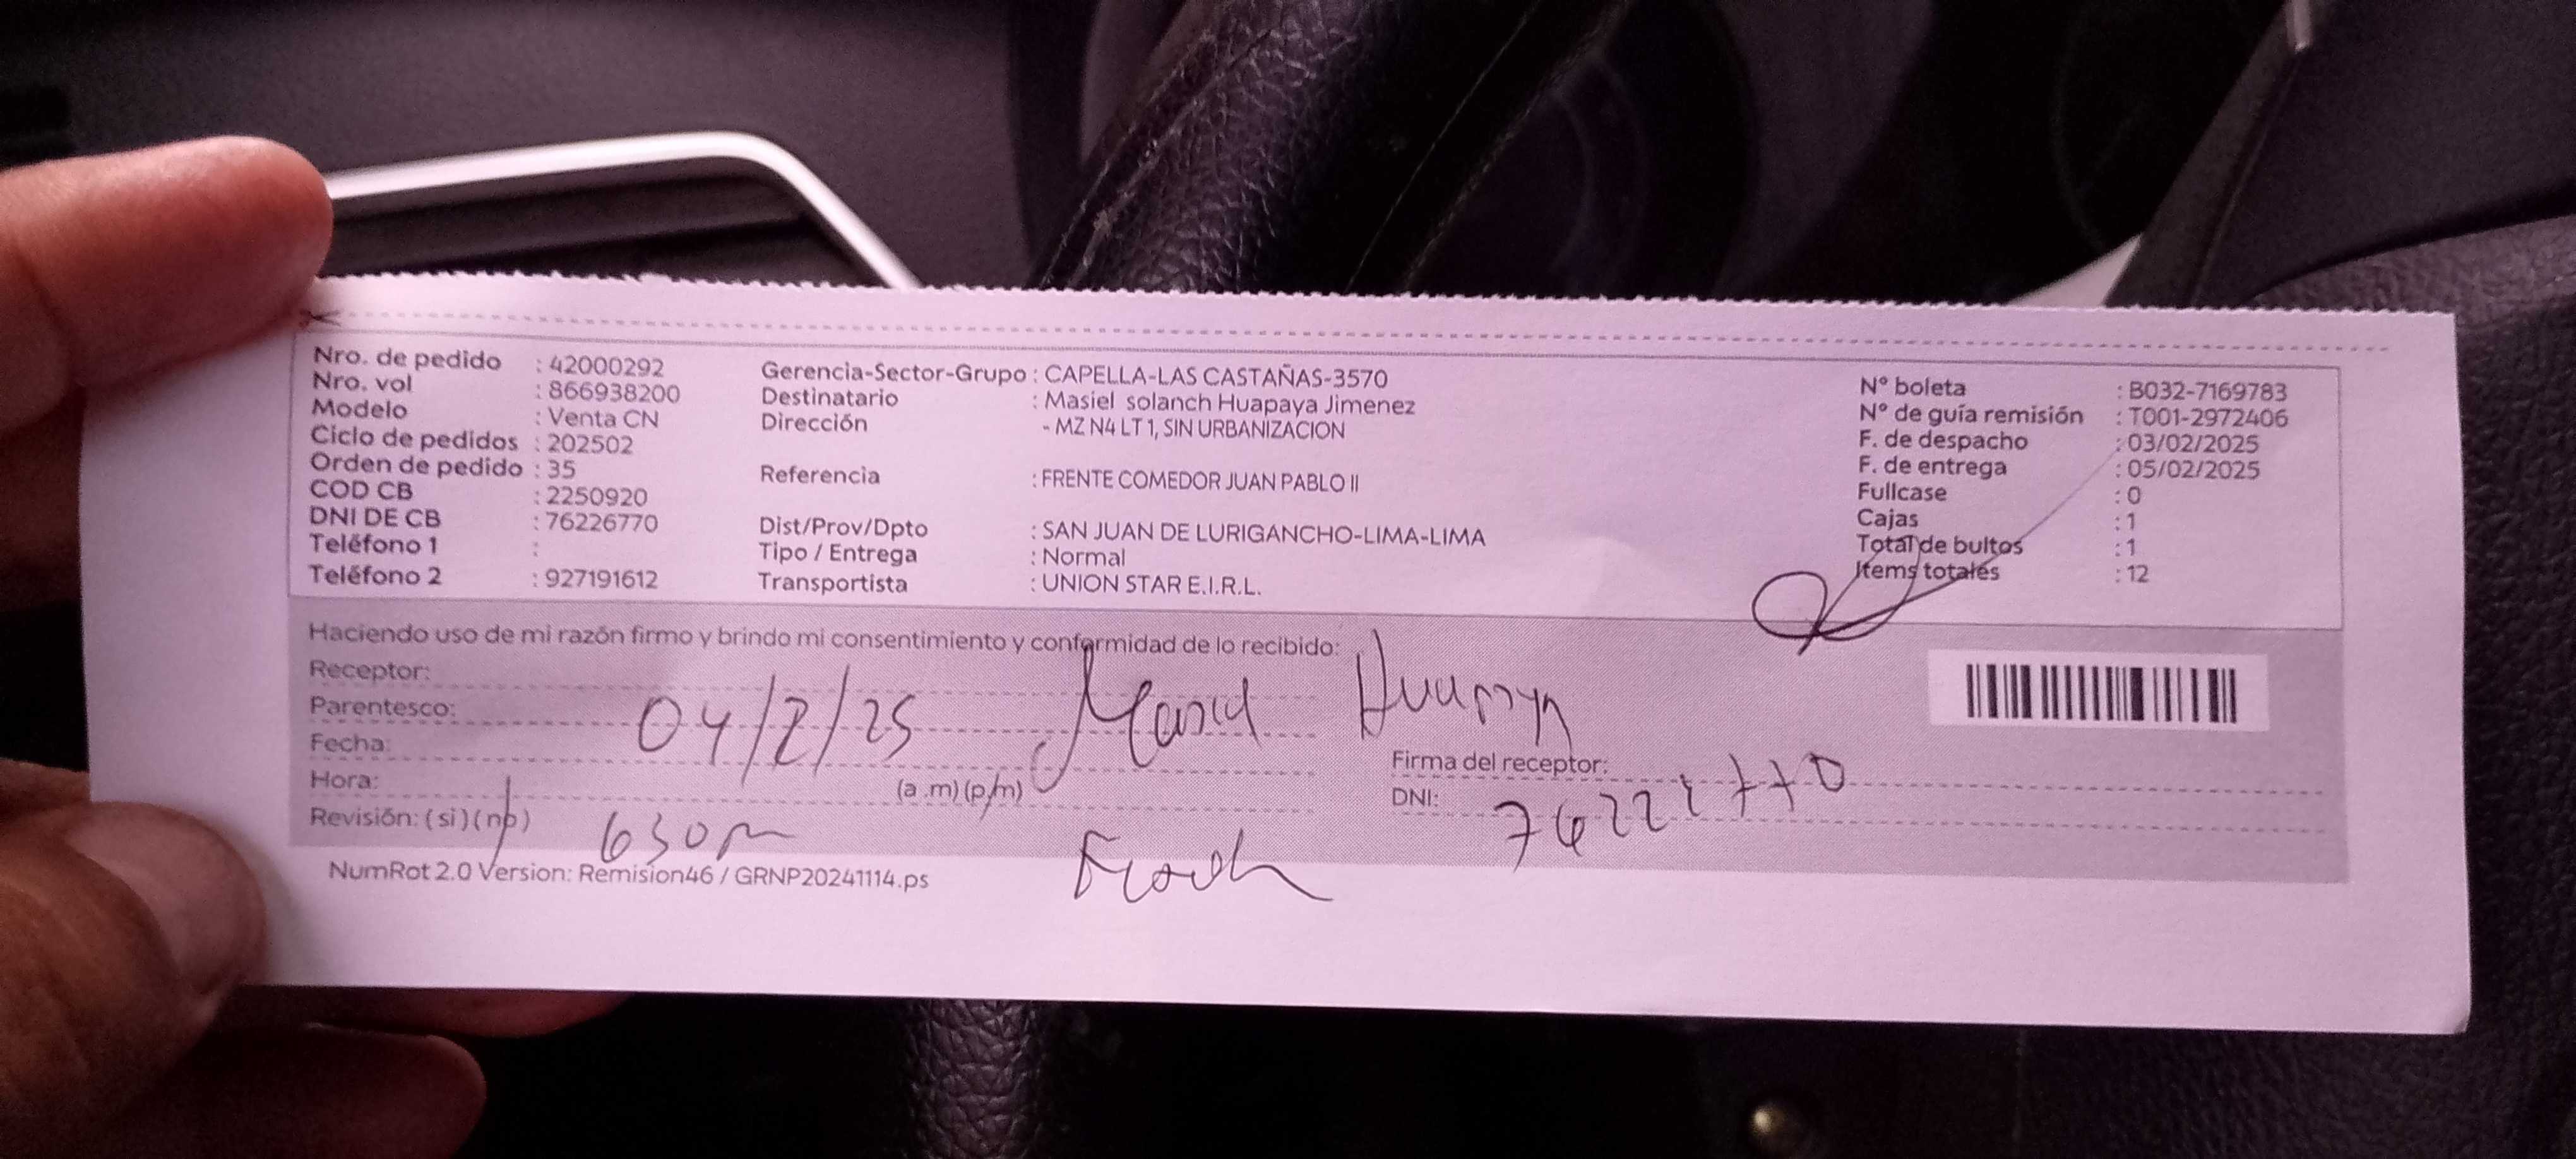 Nro. de pedido : 42000292
Nro. vol : 866938200
Modelo : Venta CN
Ciclo de pedidos : 202502
Orden de pedido : 35
COD CB : 2250920
DNI DE CB : 76226770
Teléfono 1 :
Teléfono 2 : 927191612
Gerencia-Sector-Grupo : CAPELLA-LAS CASTAÑAS-3570
Destinatario : Masiel solanch Huapaya Jimenez
Dirección - MZ N4 LT 1, SIN URBANIZACION
Referencia : FRENTE COMEDOR JUAN PABLO II
Dist/Prov/Dpto : SAN JUAN DE LURIGANCHO-LIMA-LIMA
Tipo / Entrega : Normal
Transportista : UNION STAR E.I.R.L.
N° boleta : B032-7169783
N° de guía remisión : T001-2972406
F. de despacho : 03/02/2025
F. de entrega : 05/02/2025
Fullcase : 0
Cajas : 1
Total de bultos : 1
Items totales : 12
Haciendo uso de mi razón firmo y brindo mi consentimiento y conformidad de lo recibido:
Receptor:
Parentesco:
04/2/25
Fecha:
Hora: (a .m) (p/m)
Revisión: (si) (no)
630
Firma del receptor:
DNI:
NumRot 2.0 Version: Remision46 / GRNP20241114.ps